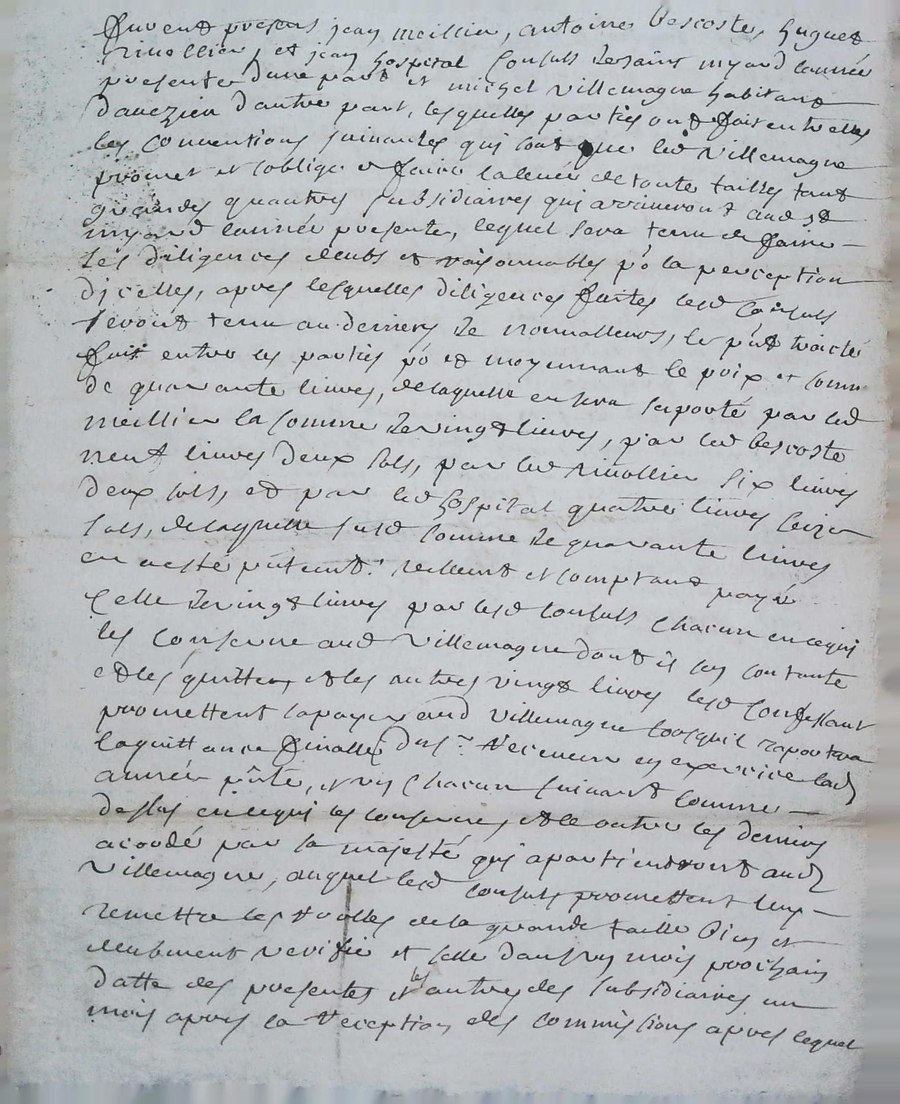 furent presens jean meillier, antoine bescoste, hugues
rinollier, et jean hospital consuls de saint myard lannée
presente dune part et michel villemagne habitant
dauezieu dautre part, lesquelles parties ont fait entre elles
les conventions suiuantes qui sont que led villemagne
promet et soblige de faire la leuée de toute tailles tant
grandes quautres subsidiaires qui arriueront aud st
myard lannée presente, lequel sera tenu de faire
les diligences deubs et raisonnables po la perception
dicelles, apres lesquelles diligences faites lesd consuls
seront tenu au deniers de nonualleurs, le pnt traicté
fait entre les parties po et moyennant le prix et somme
de quarante liures, de laquelle en sera suporté par led
meillier la somme de vingt liures, par led bescoste
neuf liures deux sols, par led rinollier six liures
deux sols, et par led hospital quatre liures seize
sols, de laquelle susd somme de quarante liures
en a esté pntemt reellemt et comptant payé
celle de vingt liures par lesd consuls chacun en ce qui
les conserne aud villemagne dont il sen contante
et les quitte, et les autres vingt liures lesd confessant
promettent la payer aud villemagne lorsquil raportera
la quittance finalle du sr receueur en exercice lad
année pnte, et ny chacun suiuant comme
dessus en ce qui les conserne, et le outre les deniers
acordé par sa majesté qui apartiendront aud
villemagne, auquel lesd consuls promettent luy
remettre les rolles de la grande taille bien et
deubement verifié et selle dans un mois prochain
datte des presentes et les autres des subsidiaires un
mois apres la reception des commissions apres lequel